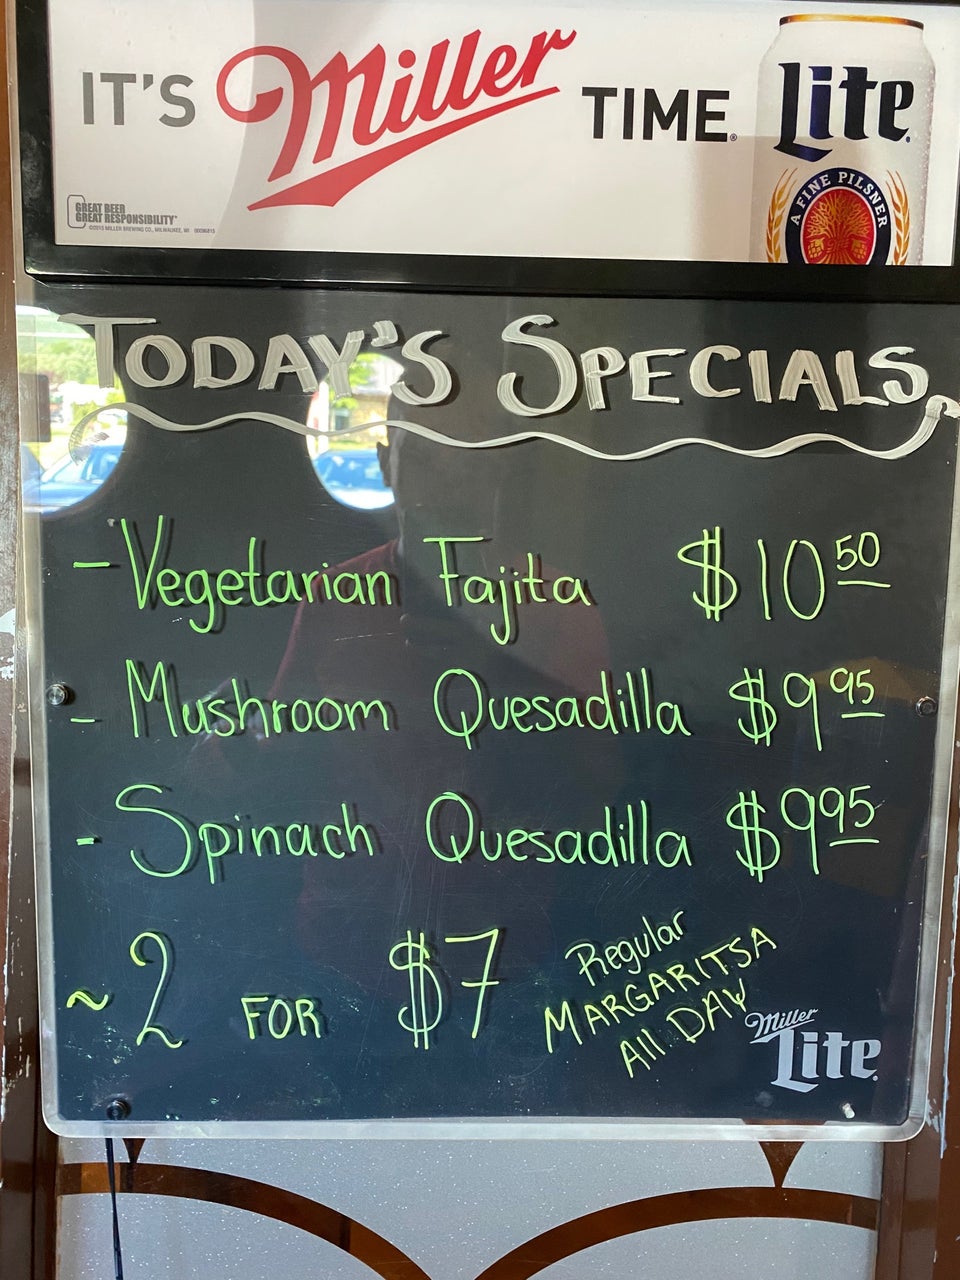 IT'S Miller TIME.
Lite
A FINE PILSNER
GREAT BEER
GREAT RESPONSIBILITY
©2015 MILLER BREWING CO., MILWAUKEE, WI
TODAY'S SPECIALS
- Vegetarian Fajita $10 50
- Mushroom Quesadilla $9 95
- Spinach Quesadilla $9 95
~ 2 FOR $7
Regular
MARGARITSA
All DAY
Miller
Lite